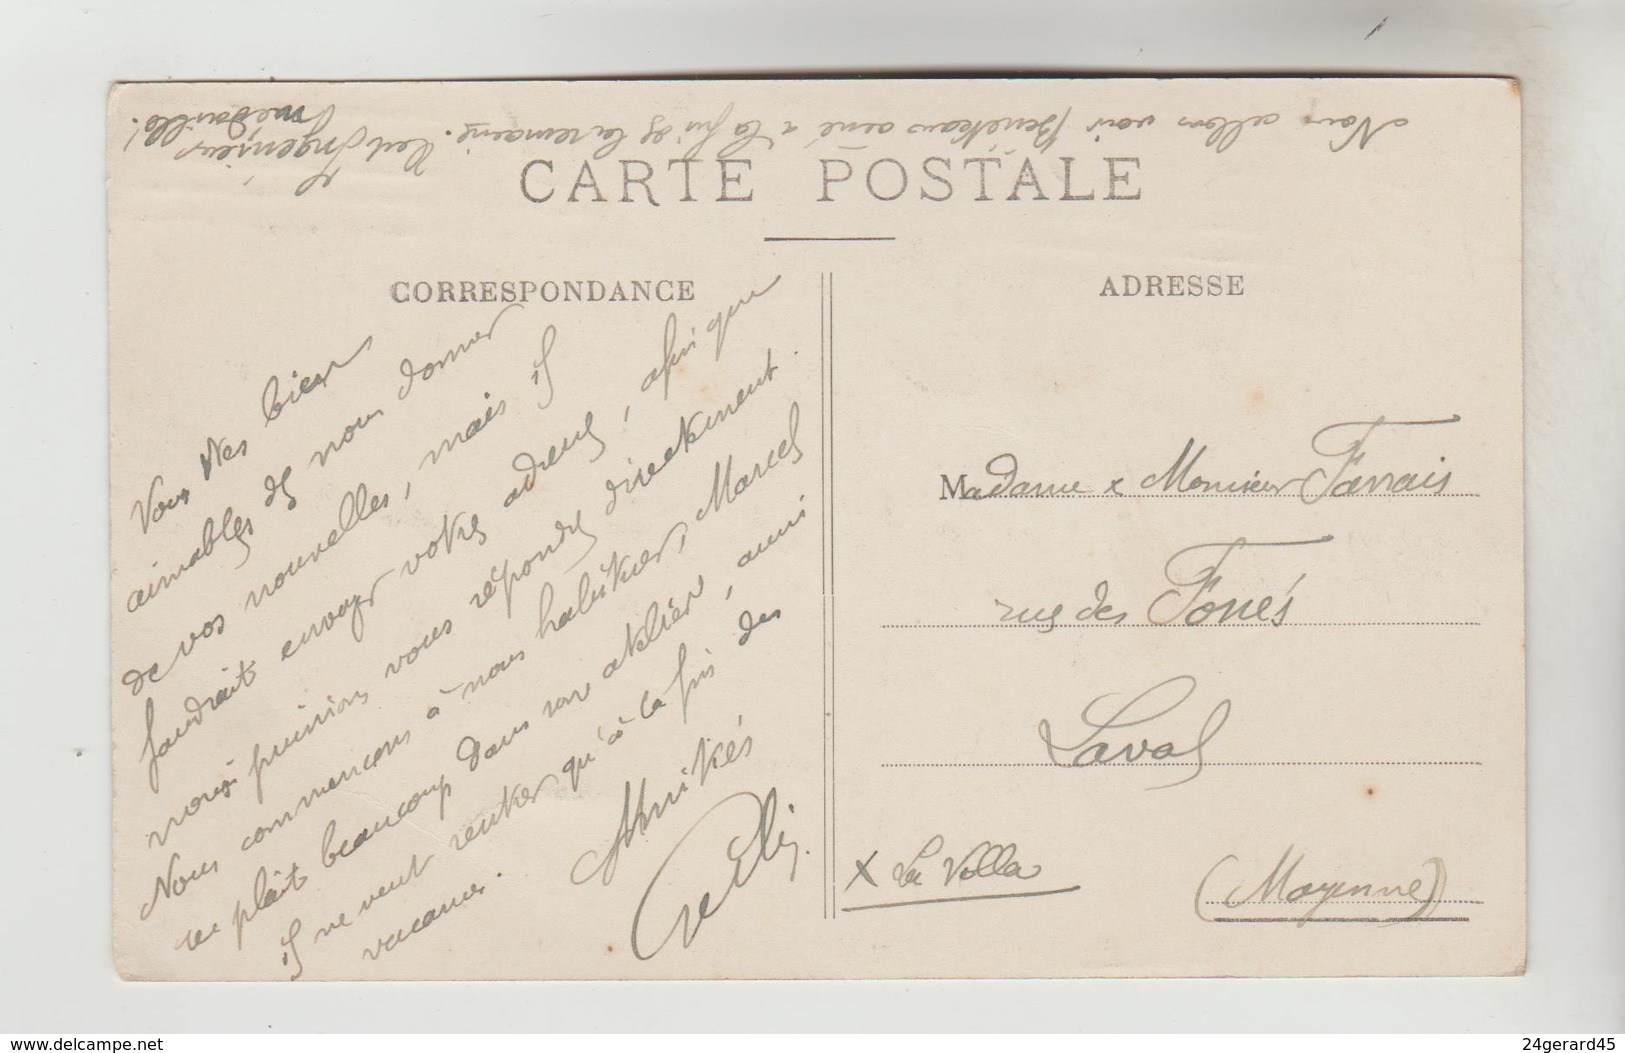 Nous allons voir Bénéteau ainé à la fin de la semaine. Il est Ingénieur
CARTE POSTALE
CORRESPONDANCE
ADRESSE
Vous êtes bien
aimables de nous donner
de vos nouvelles, mais il
faudrait envoyer votre adresse, afin que
nous puissions vous répondre directement.
Nous commençons à nous habituer, Marcel
se plait beaucoup dans son atelier, aussi
il ne veut rentrer qu'à la fin des
vacances.
Amitiés
Madame & Monsieur Farrais
rue des Fossés
Laval
x La Villa
(Mayenne)
www.delcampe.net
24gerard45